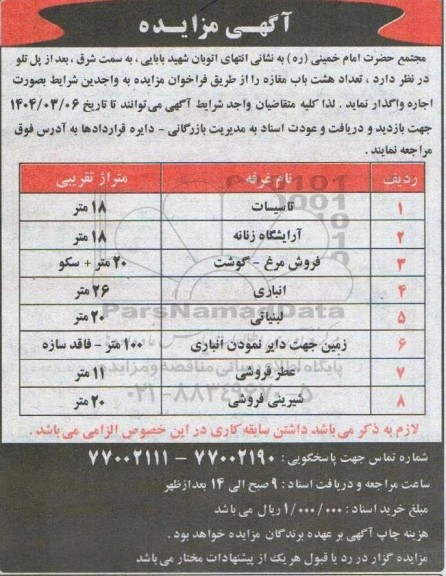 آگهی مزایده
مجتمع حضرت امام خمینی (ره) به نشانی انتهای اتوبان شهید بابایی، به سمت شرق، بعد از پل تلو
در نظر دارد، تعداد هشت باب مغازه را از طریق فراخوان مزایده به واجدین شرایط بصورت
اجاره واگذار نماید. لذا کلیه متقاضیان واجد شرایط آگهی می‌توانند تا تاریخ ۱۴۰۴/۰۳/۰۶
جهت بازدید و دریافت و عودت اسناد به مدیریت بازرگانی - دایره قراردادها به آدرس فوق
مراجعه نمایند.
ردیف نام غرفه متراژ تقریبی
۱ تاسیسات ۱۸ متر
۲ آرایشگاه زنانه ۱۸ متر
۳ فروش مرغ - گوشت ۲۰ متر + سکو
۴ انباری ۲۶ متر
۵ لبنیاتی ۲۰ متر
ParsNamadData
۶ زمین جهت دایر نمودن انباری ۱۰۰ متر - فاقد سازه
۷ عطر فروشی ۱۱ متر
۸ شیرینی فروشی ۲۰ متر
لازم به ذکر می‌باشد داشتن سابقه کاری در این خصوص الزامی می‌باشد.
شماره تماس جهت پاسخگویی: ۷۷۰۰۲۱۹۰ - ۷۷۰۰۲۱۱۱
ساعت مراجعه و دریافت اسناد: ۹ صبح الی ۱۴ بعدازظهر
مبلغ خرید اسناد: ۱/۰۰۰/۰۰۰ ریال می باشد
هزینه چاپ آگهی بر عهده برندگان مزایده خواهد بود.
مزایده گزار در رد یا قبول هر یک از پیشنهادات مختار می‌باشد